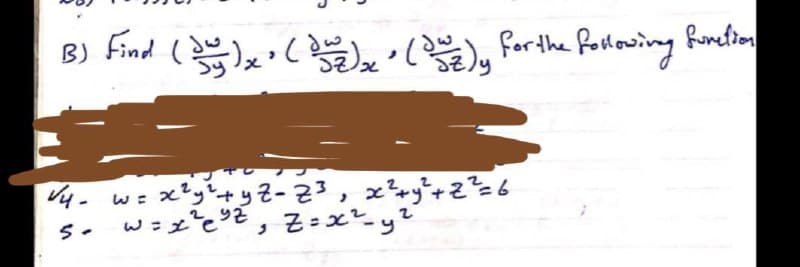 B) Find (∂w/∂y)x, (∂w/∂z)x, (∂w/∂z)y for the following function
4- w = x²y² + yz - z³, x² + y² + z² = 6
5- w = x²e^yz, z = x² - y²